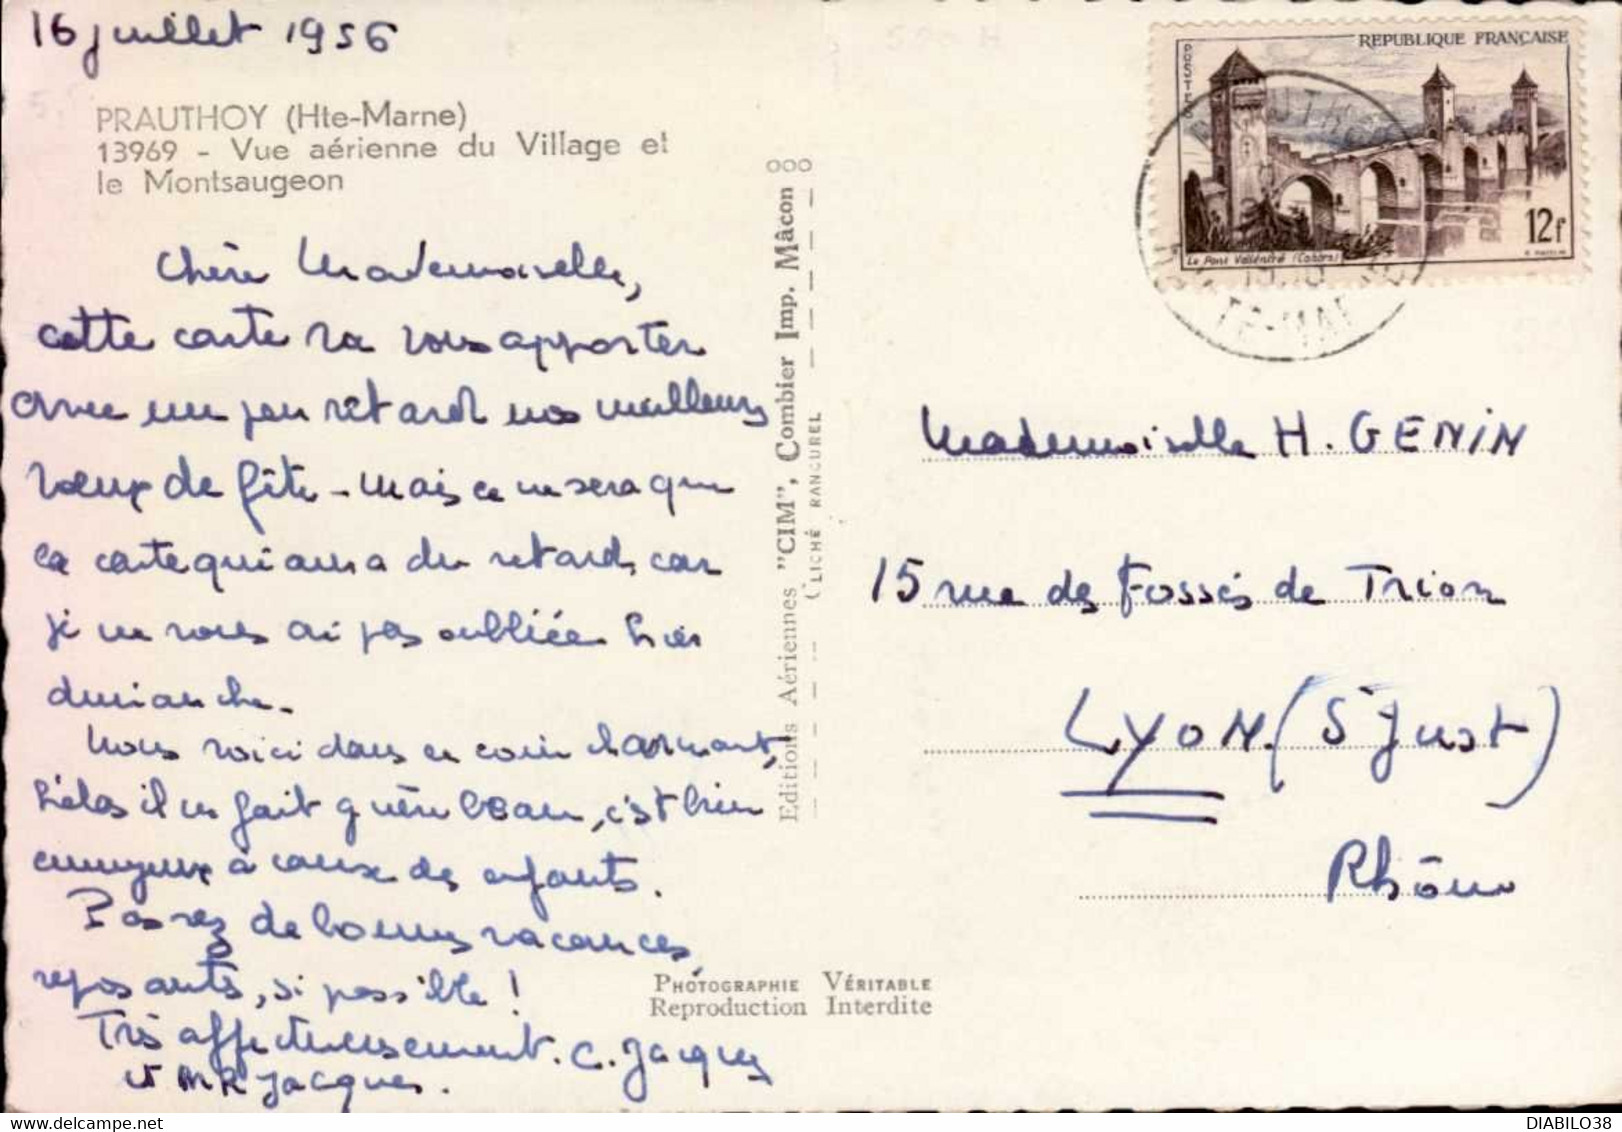 16 juillet 1956
PRAUTHOY (Hte-Marne)
13969 - Vue aérienne du Village et
le Montsaugeon
Chère Mademoiselle,
cette carte va vous apporter
avec un peu retard nos meilleurs
voeux de fête - Mais ce ne sera que
la carte qui aura du retard, car
je ne vous ai pas oubliée hier
dimanche.
Nous voici dans ce coin charmant,
hélas il ne fait guère beau, c'est bien
ennuyeux à cause des enfants.
Passez de bonnes vacances,
reposants, si possible !
Très affectueusement. C. Jacques
et MR Jacques.
Editions Aériennes "CIM", Combier Imp. Mâcon
CLICHÉ RANCUREL
PHOTOGRAPHIE VÉRITABLE
Reproduction Interdite
REPUBLIQUE FRANÇAISE
POSTES
12f
Le Pont Valentré (Cahors)
Mademoiselle H. GENIN
15 rue des Fossés de Trion
LYON (St Just)
Rhône
DIABILO38